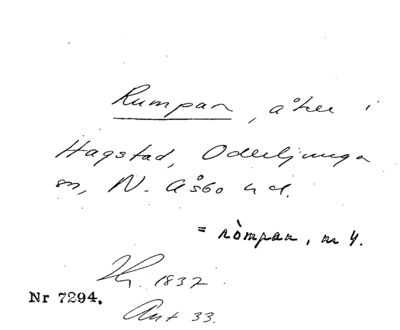 Rumpan, åker i
Hagstad, Oderljunga
sn, N. Åsbo hd.
= ròmpan, m 4.
1832.
Nr 7294.
Ant 33.